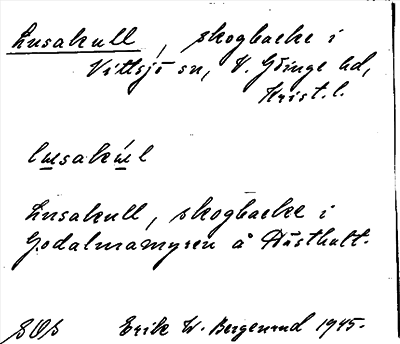 Lusakull, skogbacke i
Vittsjö sn, V. Göinge hd,
Krist. l.
lusakúl
Lusakull, skogbacke i
Godalmamyren å Hästhult.
SOS Erik W. Bergenrud 1945.